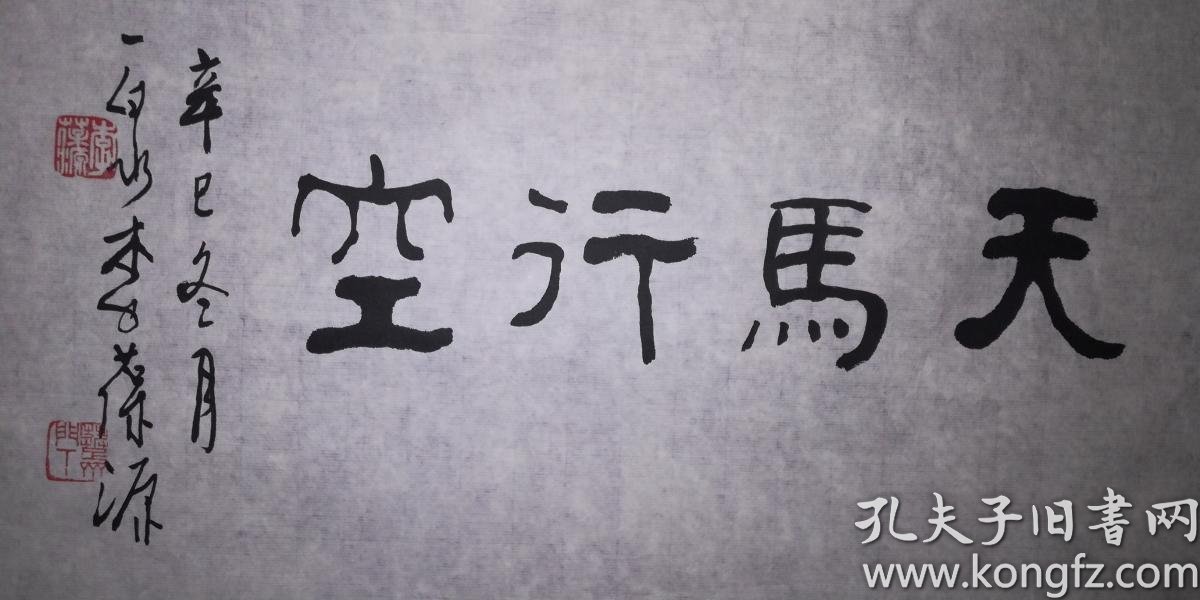 天馬行空
辛巳冬月
一泉李葆源
孔夫子旧書网
www.kongfz.com